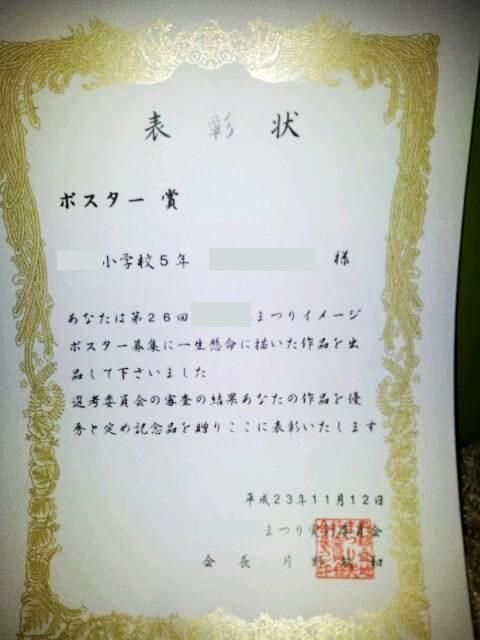 表彰状
ポスター賞
小学校5年 様
あなたは第26回 まつりイメージ
ポスター募集に一生懸命に描いた作品を出
品して下さいました
選考委員会の審査の結果あなたの作品を優
秀と定め記念品を贈りここに表彰いたします
平成23年11月12日
まつり実行委員会
会長 片